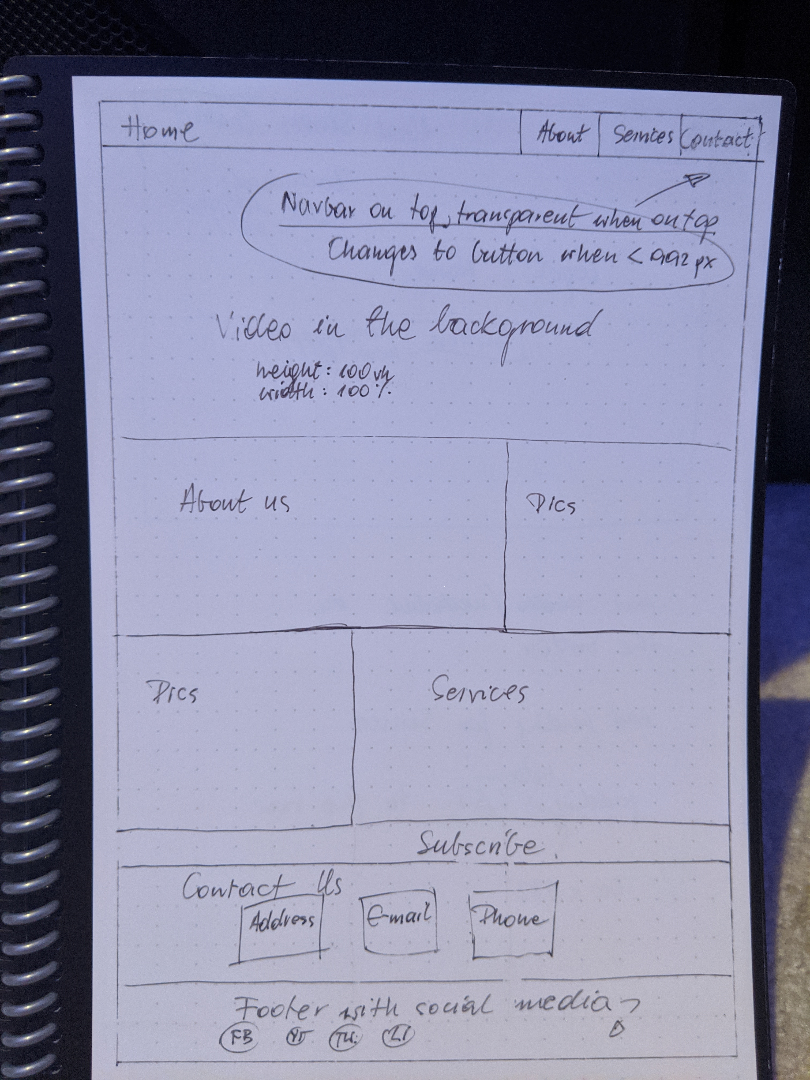 Home About Services Contact
Navbar on top, transparent when on top
Changes to button when < 992 px
Video in the background
height: 100vh
width: 100%
About us
Pics
Pics
Services
Subscribe
Contact Us
Address E-mail Phone
Footer with social media
FB